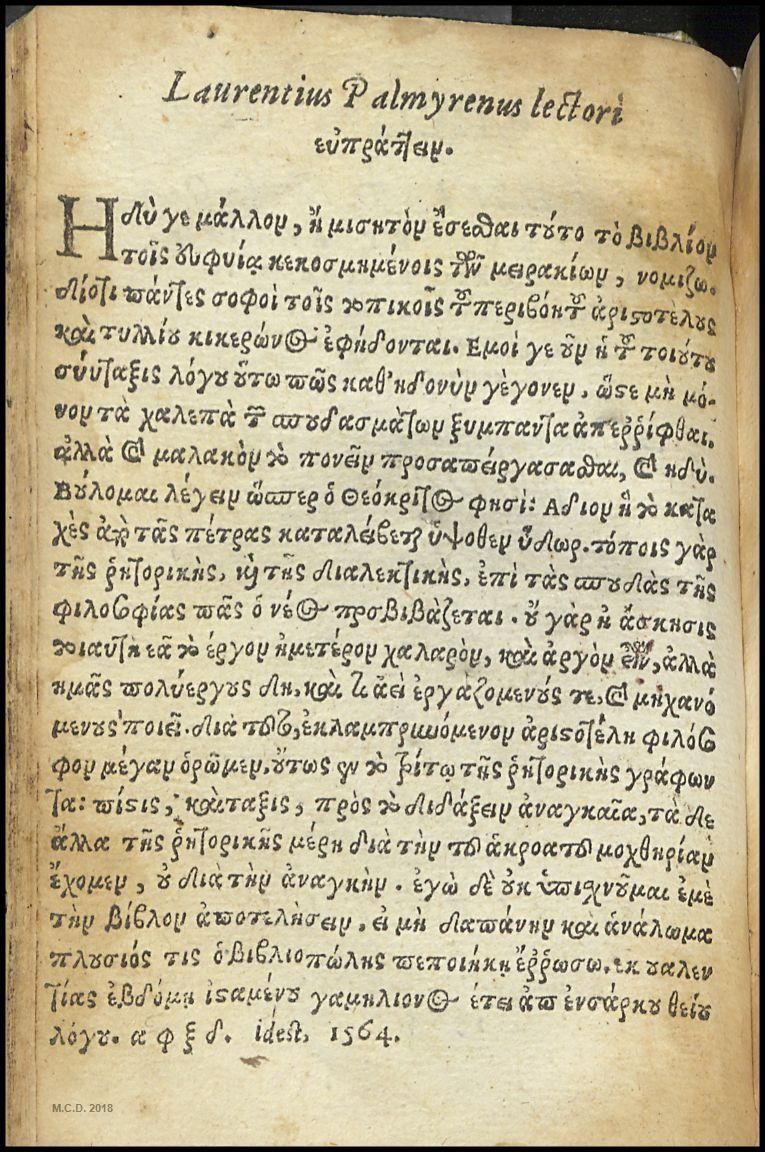 Laurentius Palmyrenus lectori
εὐπράττειν.
Ηδὺ γε μάλλον, ἢ μισητὸν ἔσεσθαι τύτο τὸ βιβλίον
τοῖς εὐφυίᾳ κεκοσμημένοις τῶν μειρακίων, νομιζω.
διότι πάντες σοφοὶ τοῖς τοπικοῖς τοῦ περιβόητου ἀριστοτὲλυς
καὶ τυλλίυ κικερώνος ἐφήδονται. Εμοί γε ὖν ἡ τοῦ τοιύτυ
σύνταξις λόγυ ὕτω πῶς καθ' ηδονὺν γὲγονεν, ὥστε μὴ μό-
νον τὰ χαλεπὰ τῶν σπυδασμὰτων ξυμπαντα ἀπεῤῥίφθαι,
ἀλλὰ καὶ μαλακὸν τὸ πονεῖν προσαπέιργασασθαι, καὶ ηδὺ.
Βύλομαι λέγειν ὥσπερ ὁ Θεόκριτος φησὶ: Αδιον ἢ τὸ κατα
χὲς ἀπὸ τᾶς πέτρας καταλείβεται ὑψοθεν ὕδωρ. τόποις γὰρ
τῆς ῥητορικὴς, καὶ τῆς διαλεκτικὴς, ἐπὶ τὰς σπυδὰς τῆς
φιλοσοφίας πᾶς ὁ νέος προσβιβὰζεται. ὐ γὰρ ἡ ἄσκησις
τοιαυτὴ εᾶ τὸ έργον ημετέρον χαλαρὸν, καὶ ἀργὸν εἶναι, ἀλλὰ
ημᾶς πολύεργυς δη, καὶ ἀεὶ ἐργὰζομενύς τε, καὶ μηχανό
μενυς ποιεῖ. διὰ τοῦτο, ἐκλαμπρυνόμενον ἀριστοτέλη φιλόσο
φον μέγαν ὁρῶμεν, ὕτως ἐν τὸ τρίτῳ τῆς ῥητορικὴς γράφων
τα: πίστις, καὶ ταξις, πρὸς τὸ διδάξειν ἀναγκαῖα, τὰ δε
ἄλλα τῆς ῥητορικῆς μέρη διὰ τὴν τοῦ ἀκροατοῦ μοχθηρίαν
ἔχομεν, ὐ διὰ τὴν ἀναγκὴν. ἐγὼ δὲ ὐκ ὑπισχνῦμαι ἐμὲ
τὴν Βίβλον ἀποτελὴσειν, ἐι μὴ δαπάνην καὶ ἀνάλωμα
πλυσιός τις ὁ βιβλιοπώλης πεποιήκη ἔῤῥωσω. εκ υαλεν
τίας ἑβδόμη ἱσταμένυ γαμηλιονος έτει ἀπ ἐνσάρκυ θείυ
λόγυ. α φ ξ δ. idest, 1564.
M.C.D. 2018